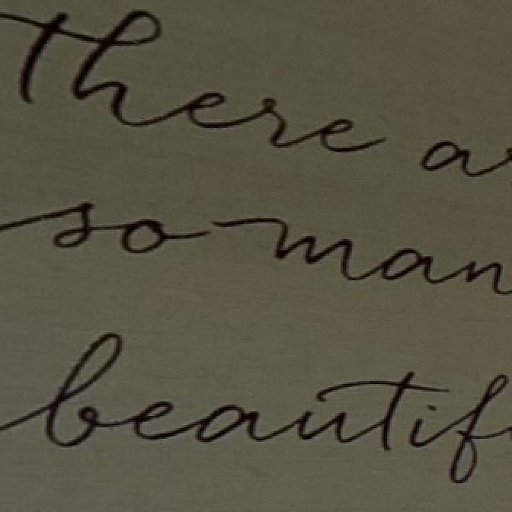 There a
so man
beautif